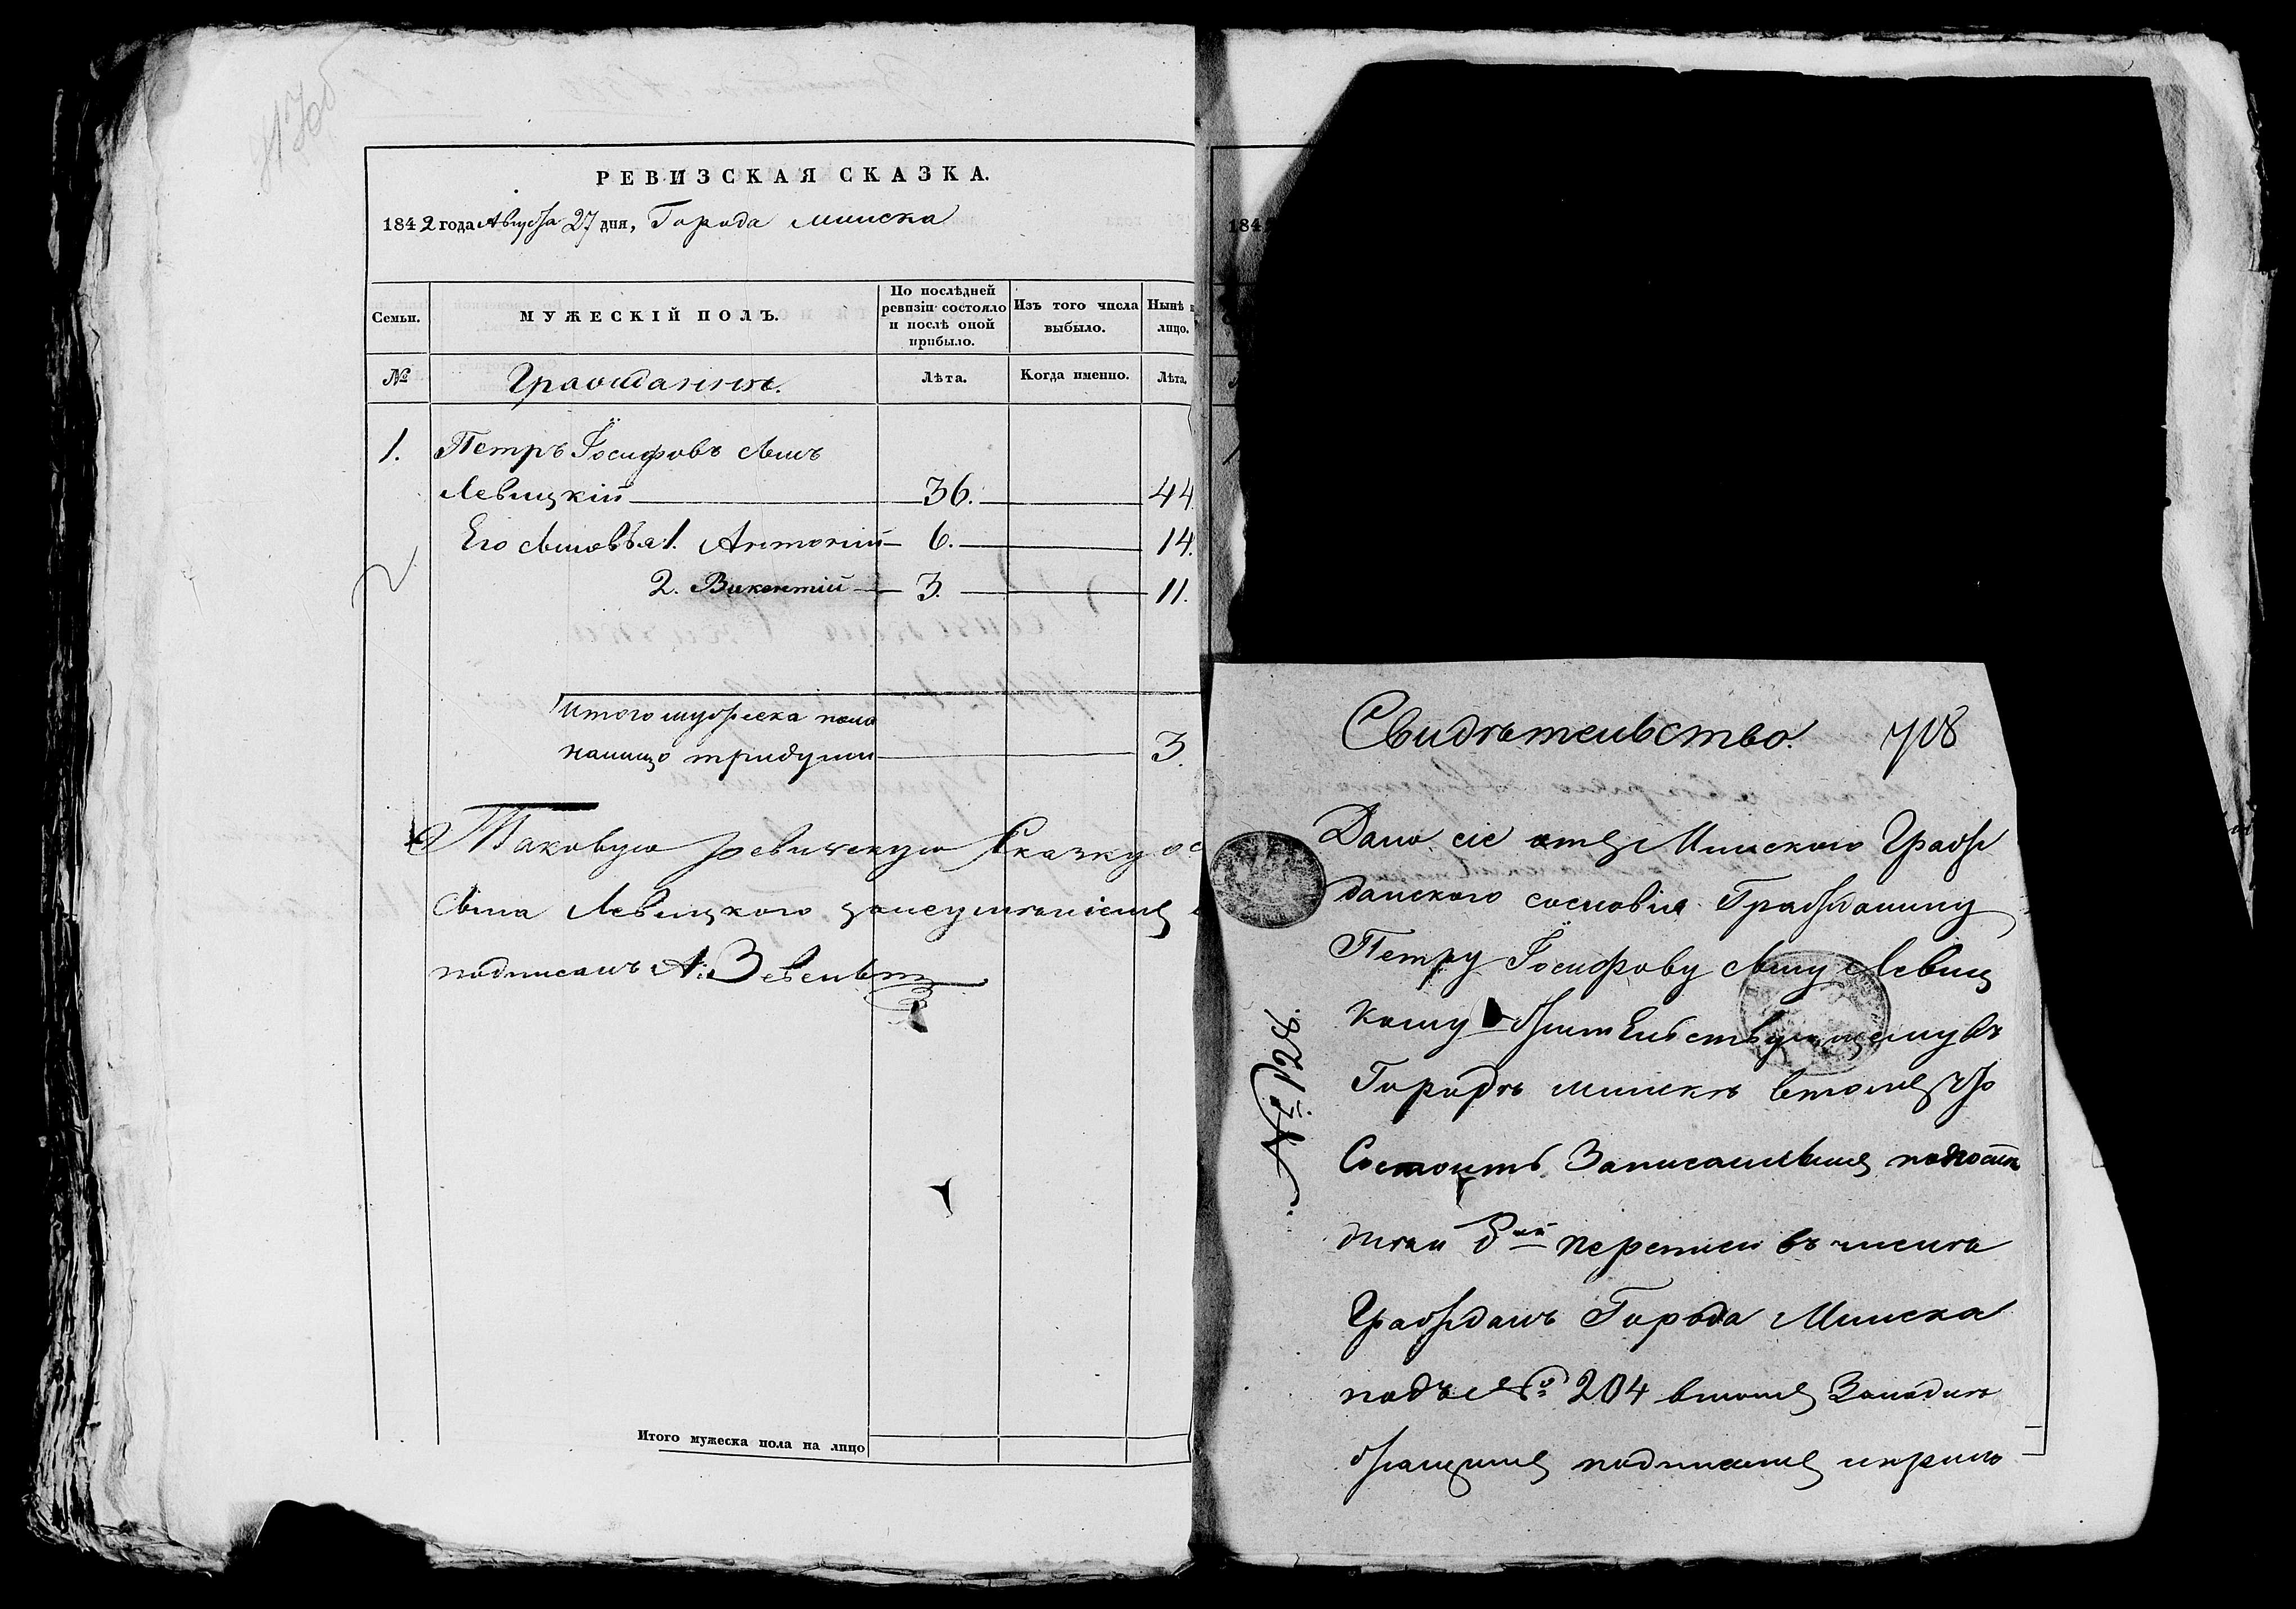 РЕВИЗСКАЯ СКАЗКА.
1842 года Августа 27 дня, Города Минска
Семьи.
МУЖЕСКІЙ ПОЛЪ.
По послѣдней
ревизіи состояло
и послѣ оной
прибыло.
Изъ того числа
выбыло.
Нынѣ н
лицо.
№
Граждане.
Лѣта.
Когда именно.
Лѣта.
1. Петръ Іосифовъ сынъ
Левицкій 36. 44
Его сыновья 1. Антоній 6. 14.
2. Викентій 3. 11.
Итого мужеска пола
налицо три души 3.
Таковую ревизскую Сказку
сына Левицкого
подписалъ А:
Итого мужеска пола на лицо
184
1.
Свидѣтельство. 708
Дано сіе отъ Минского Граж
данского сословія Гражданину
Петру Іосифову сыну Левиц
кому жительствующему въ
Городѣ Минскѣ втомъ что
Состоитъ Записаннымъ
8ой переписи въ числѣ
Гражданъ Города Минска
подъ № 204 втомъ Занадле
жащимъ подписомъ
№ 128.